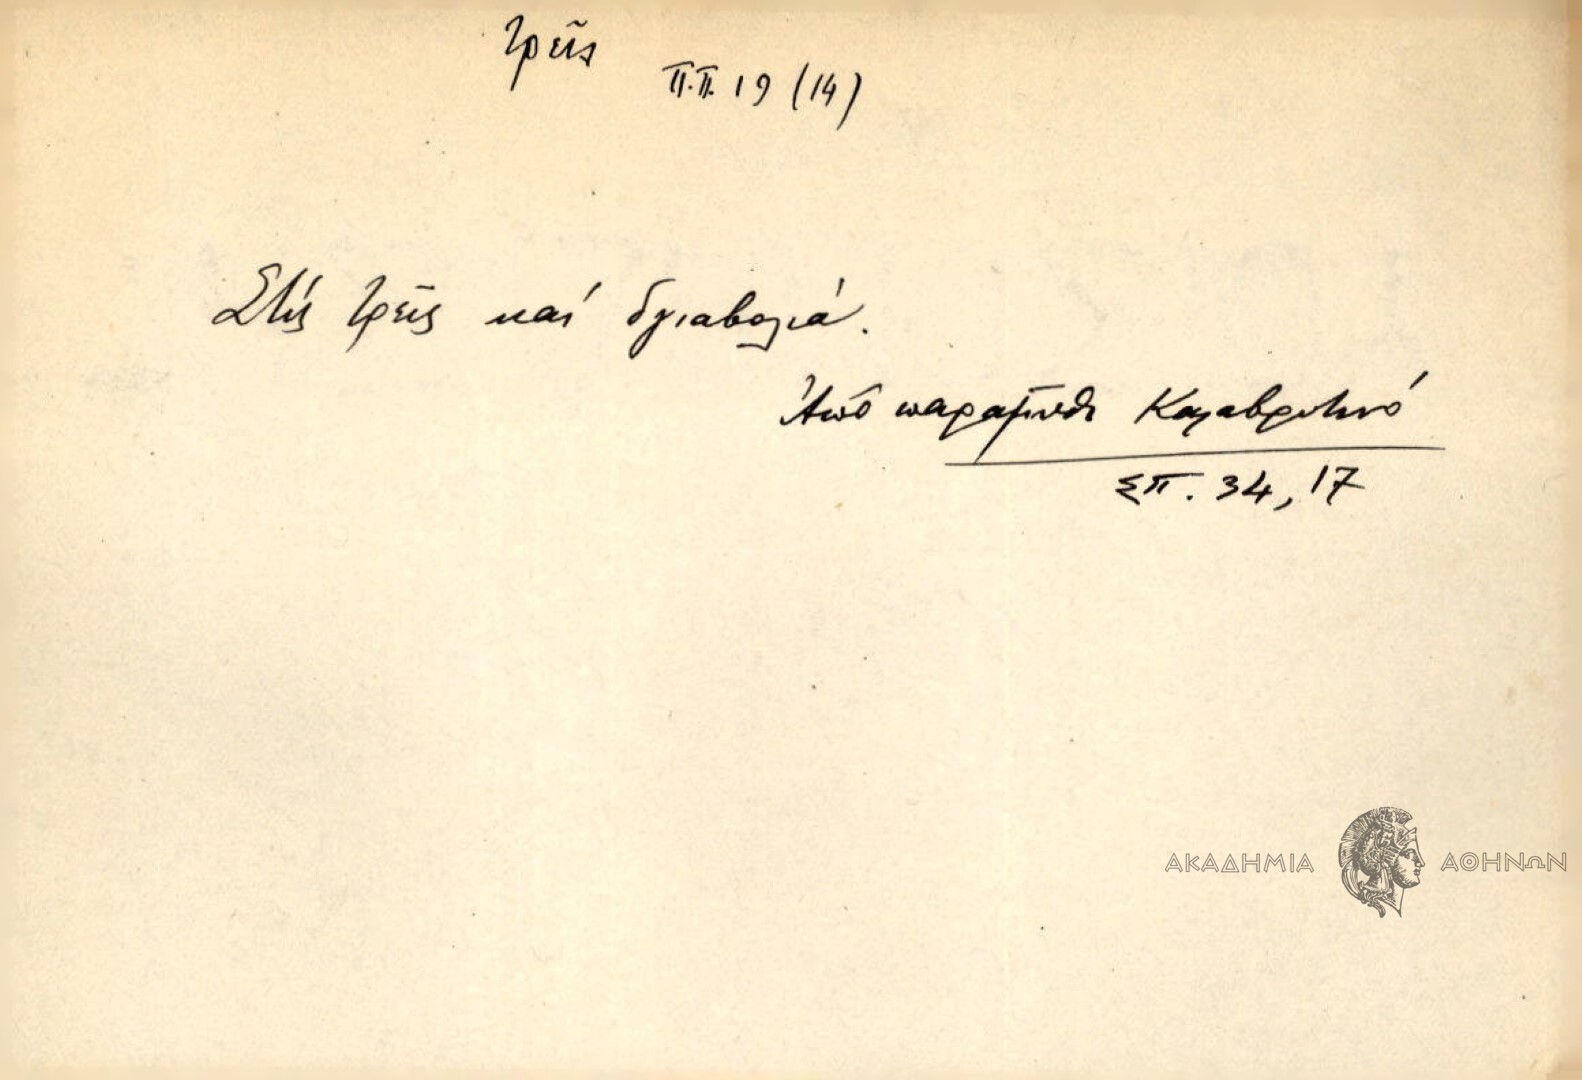 τρεῖς
Π.Π. 19 (14)
Στίς τρεῖς καί δγιαβολιά.
Ἀπό παραμύθι Καλαβρυτινό
ΣΠ. 34, 17
ΑΚΑΔΗΜΙΑ ΑΘΗΝΩΝ